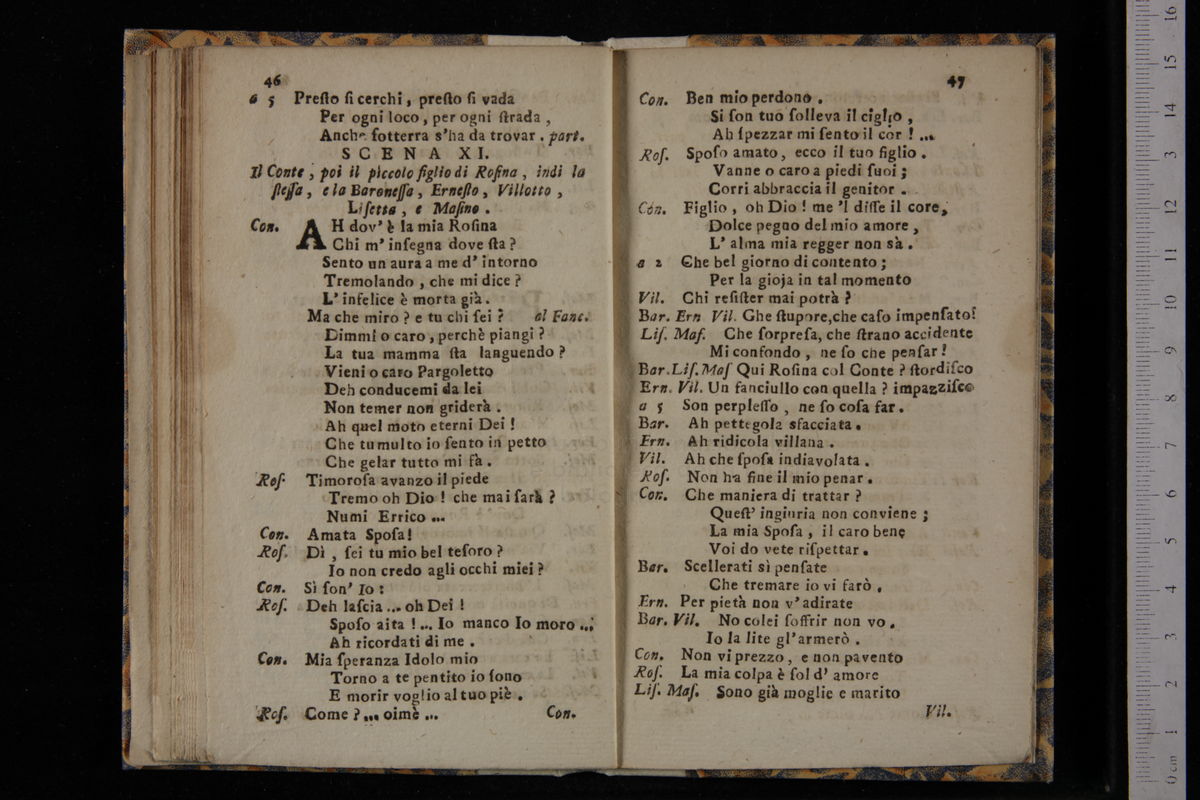 46
a 5 Preſto ſi cerchi, preſto ſi vada
Per ogni loco, per ogni ſtrada,
Anche ſotterra s'ha da trovar. part.
SCENA XI.
Il Conte, poi il piccolo figlio di Roſina, indi la
ſteſſa, e la Baroneſſa, Erneſto, Villotto,
Liſetta, e Maſino.
Con. AH dov' è la mia Roſina
Chi m' inſegna dove ſta?
Sento un aura a me d' intorno
Tremolando, che mi dice?
L' infelice è morta già.
Ma che miro? e tu chi ſei? al Fanc.
Dimmi o caro, perchè piangi?
La tua mamma ſta languendo?
Vieni o caro Pargoletto
Deh conducemi da lei
Non temer non griderà.
Ah quel moto eterni Dei!
Che tumulto io ſento in petto
Che gelar tutto mi fà.
Roſ. Timoroſa avanzo il piede
Tremo oh Dio! che mai ſarà?
Numi Errico ...
Con. Amata Spoſa!
Roſ. Dì, ſei tu mio bel teſoro?
Io non credo agli occhi miei?
Con. Sì ſon' Io:
Roſ. Deh laſcia ... oh Dei!
Spoſo aita! ... Io manco Io moro ...;
Ah ricordati di me.
Con. Mia ſperanza Idolo mio
Torno a te pentito io ſono
E morir voglio al tuo piè.
Roſ. Come? ... oimè ...
Con.
47
Con. Ben mio perdono.
Si ſon tuo ſolleva il ciglio,
Ah ſpezzar mi ſento il cor! ...
Roſ. Spoſo amato, ecco il tuo figlio.
Vanne o caro a piedi ſuoi;
Corri abbraccia il genitor.
Con. Figlio, oh Dio! me 'l diſſe il core,
Dolce pegno del mio amore,
L' alma mia regger non sà.
a 2 Che bel giorno di contento;
Per la gioja in tal momento
Vil. Chi reſiſter mai potrà?
Bar. Ern Vil. Che ſtupore, che caſo impenſato!
Liſ. Maſ. Che ſorpreſa, che ſtrano accidente
Mi confondo, ne ſo che penſar!
Bar. Liſ. Maſ Qui Roſina col Conte? ſtordiſco
Ern. Vil. Un fanciullo con quella? impazziſco
a 5 Son perpleſſo, ne ſo coſa far.
Bar. Ah pettegola sfacciata.
Ern. Ah ridicola villana.
Vil. Ah che ſpoſa indiavolata.
Roſ. Non ha fine il mio penar.
Con. Che maniera di trattar?
Queſt' ingiuria non conviene;
La mia Spoſa, il caro bene
Voi do vete riſpettar.
Bar. Scellerati sì penſate
Che tremare io vi farò.
Ern. Per pietà non v' adirate
Bar. Vil. No colei ſoffrir non vo.
Io la lite gl' armerò.
Con. Non vi prezzo, e non pavento
Roſ. La mia colpa è ſol d' amore
Liſ. Maſ. Sono già moglie e marito
Vil.
16
15
14
13
12
11
10
9
8
7
6
5
4
3
2
1
0 cm